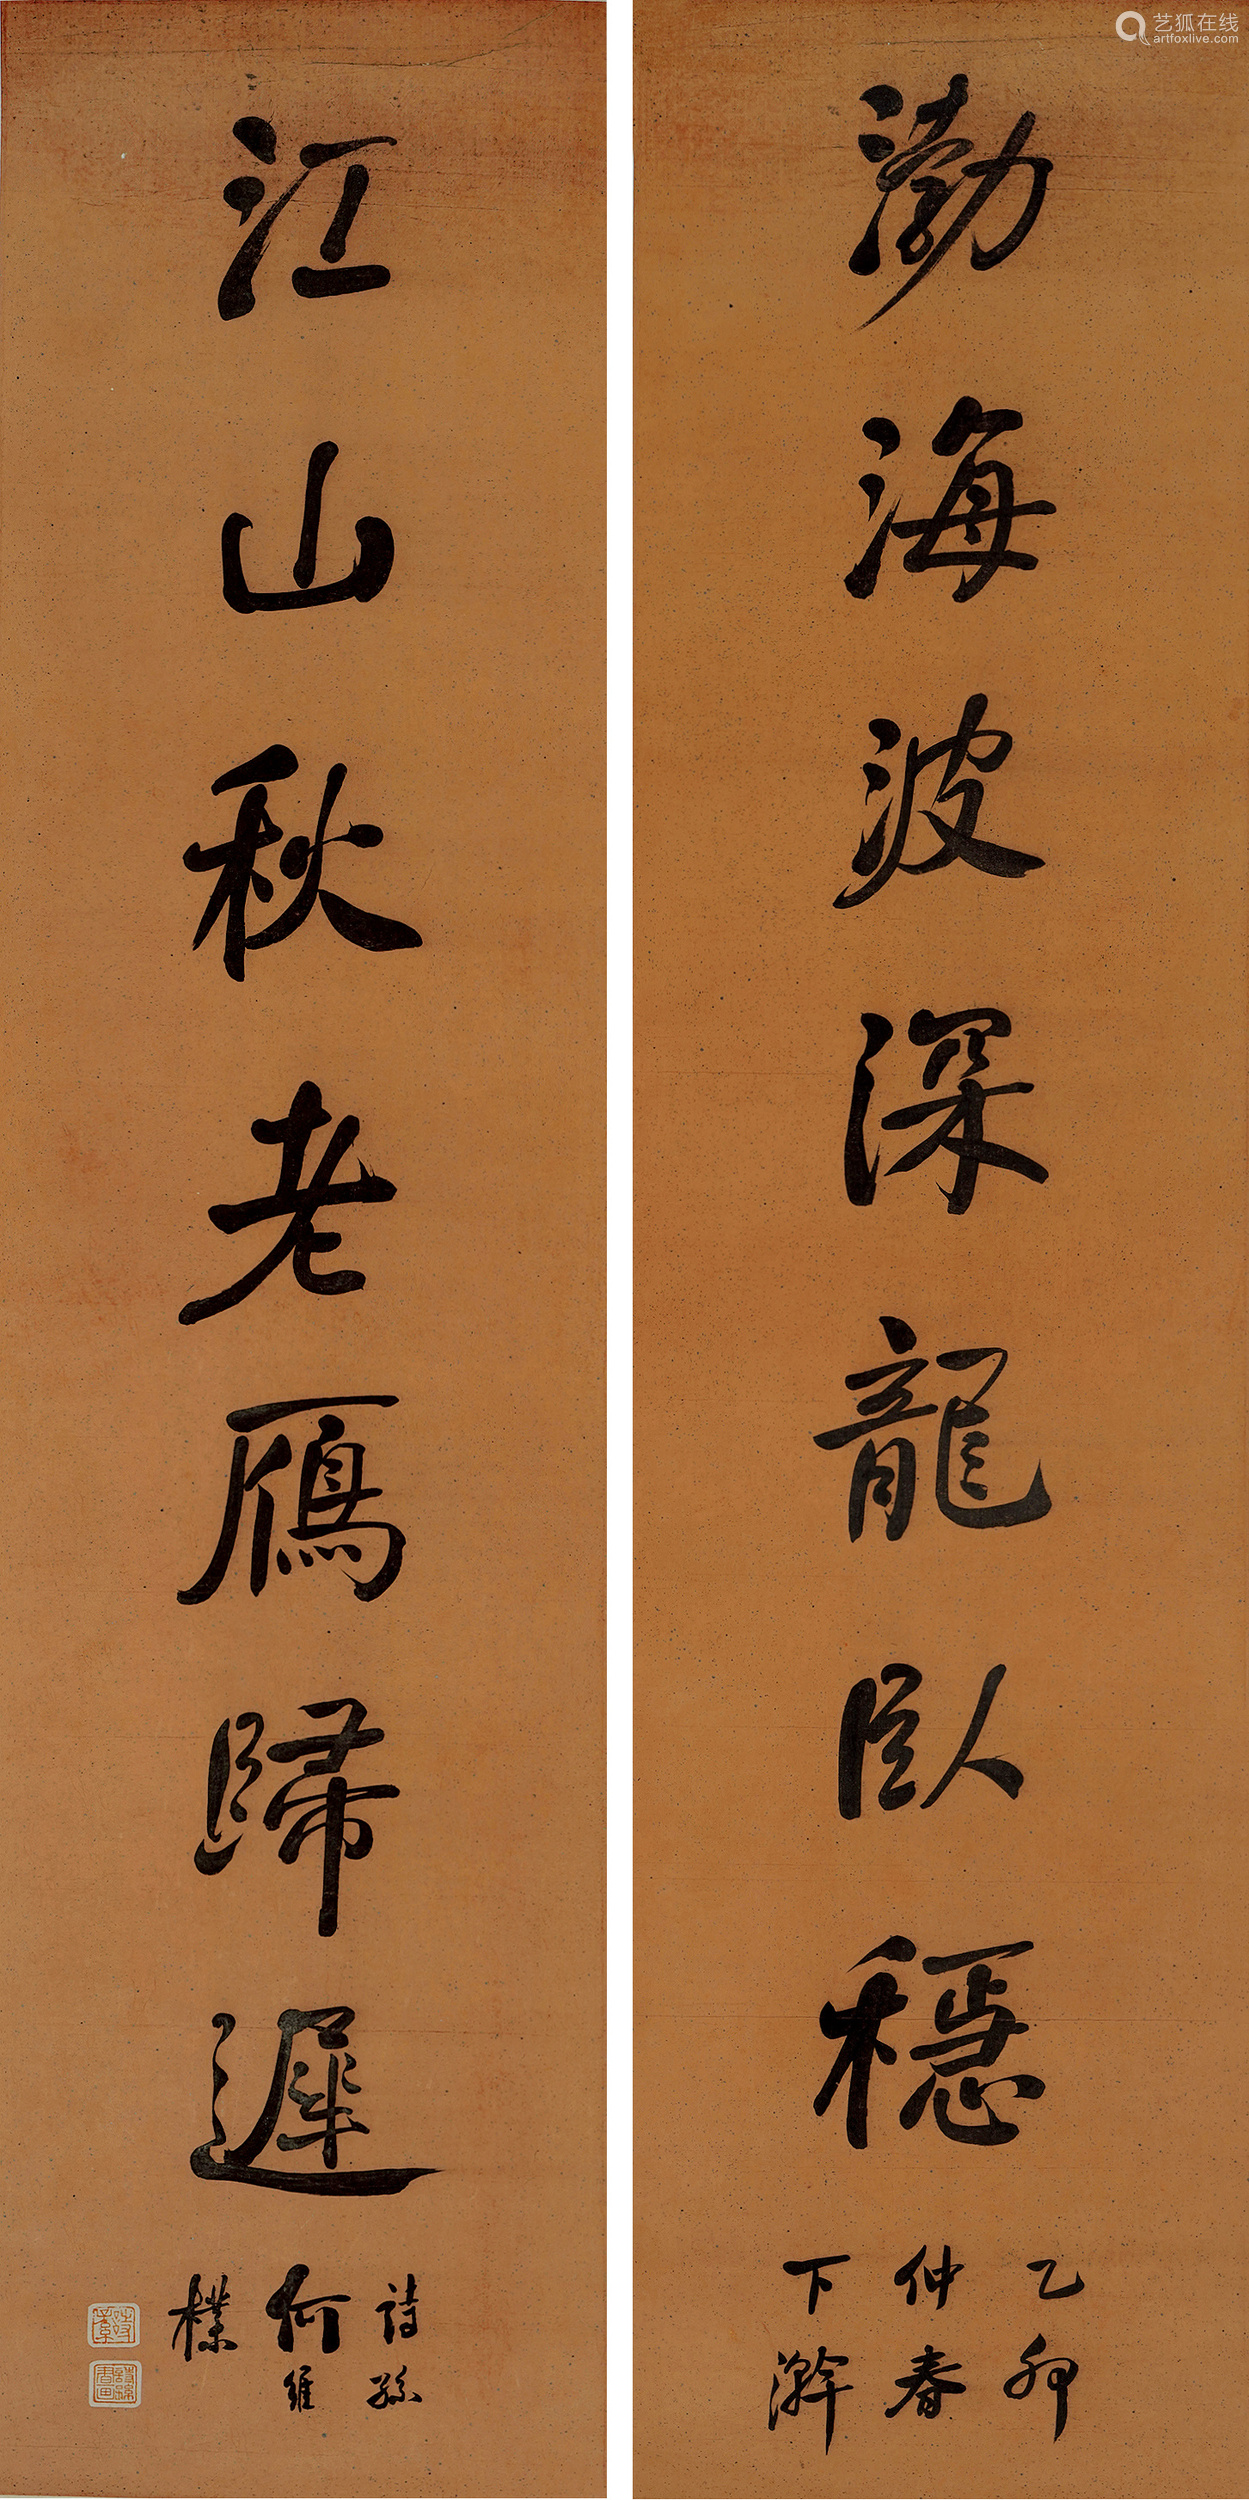 渤海波深龍臥穩
乙卯
仲春
下澣
江山秋老鴈歸遲
詩孫
何維
樸
艺狐在线
artfoxlive.com